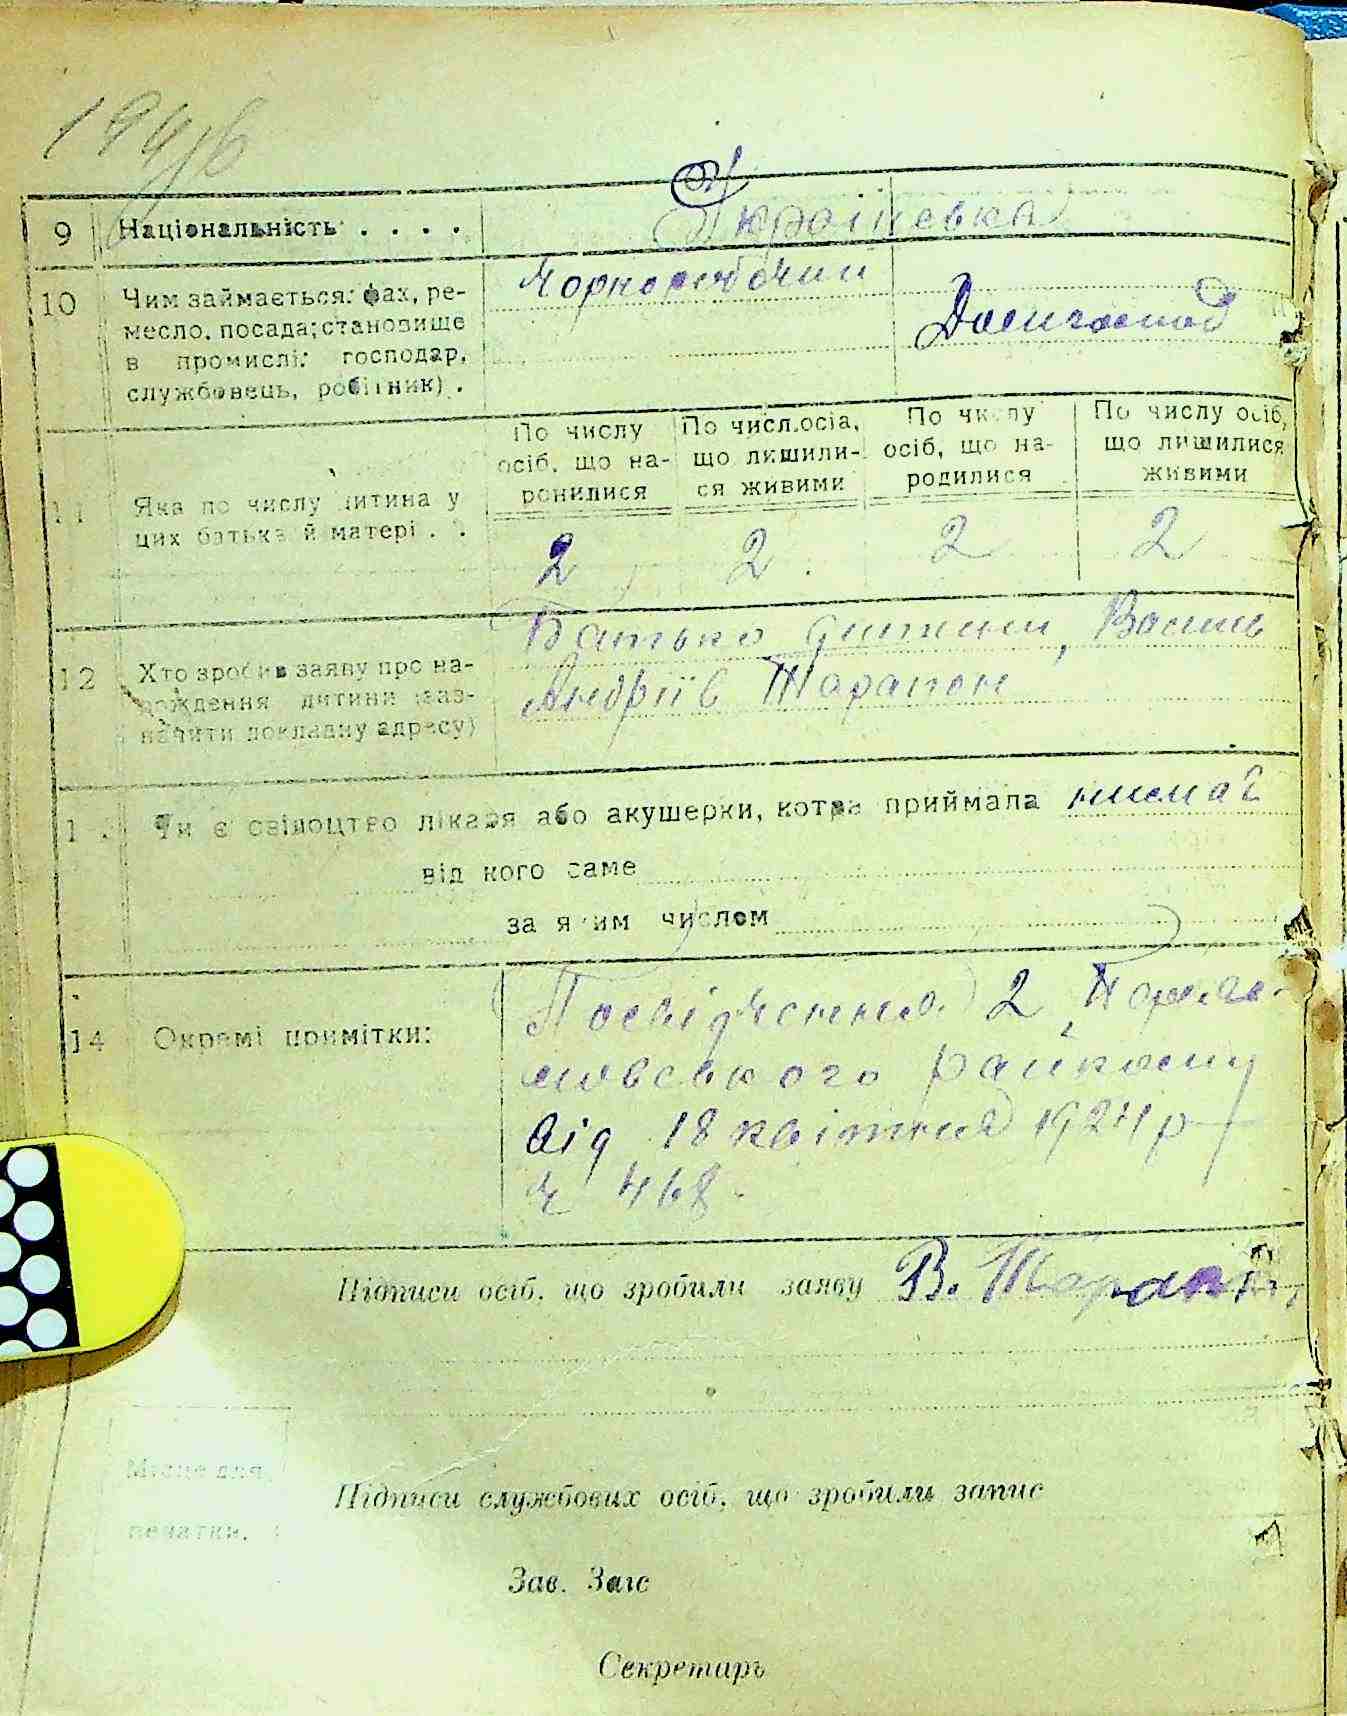 9 Національність . . . .
Українська
10 Чим займається: фах, ре-
месло, посада; становище
в промислі: господар,
службовець, робітник) .
Чорноробочий
Домогоспод
По числу
осіб, що на-
ронилися
По числ.осіа,
що лишили-
ся живими
По числу
осіб, що на-
родилися
По числу осіб,
що лишилися
живими
11 Яка по числу дитина у
цих батька й матері . .
2 2 2 2
12 Хто зробив заяву про на-
рождення дитини (заз-
начити докладну адресу)
Батько дитини, Василь
Андріїв Тарапон
Чи є свідоцтво лікаря або акушерки, котра приймала нема
від кого саме
за яким числом
14 Окремі примітки:
Посвідчення 2
райкому
від 18 квітня 1924 р
ч 468.
Підписи осіб, що зробили заяву В. Тарапон
Місце для
печатки.
Підписи службових осіб, що зробили запис
Зав. Загс
Секретарь